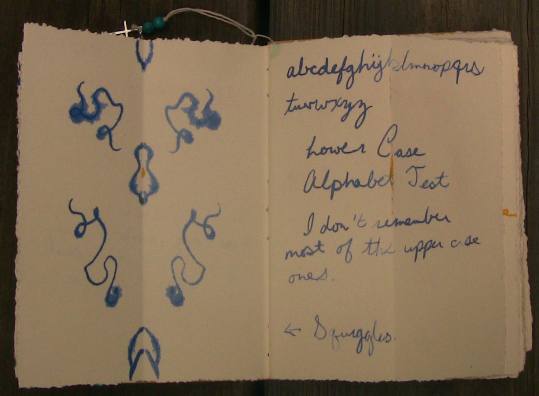 abcdefghijklmnopqrs
tuvwxyz
Lower Case
Alphabet Test
I don't remember
most of the upper case
ones.
← Squiggles.